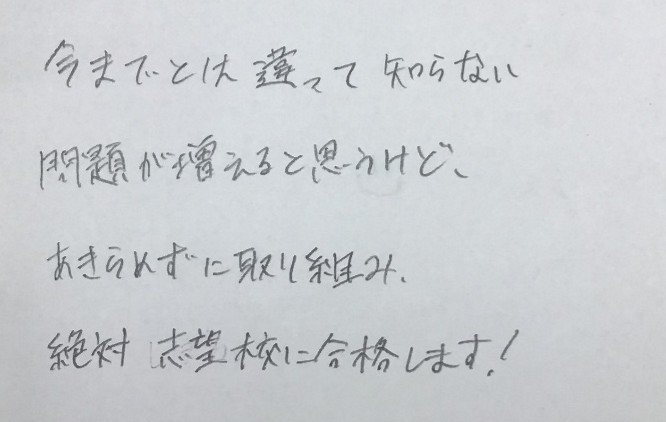 今までとは違って知らない
問題が増えると思うけど、
あきらめずに取り組み、
絶対志望校に合格します!